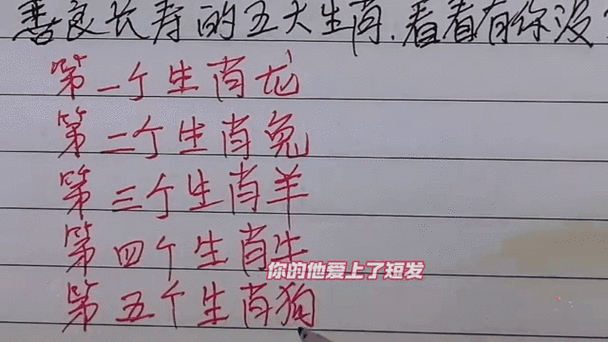 善良长寿的五大生肖.看看有你没
第一个生肖龙
第二个生肖兔
第三个生肖羊
第四个生肖牛
你的他爱上了短发
第五个生肖狗